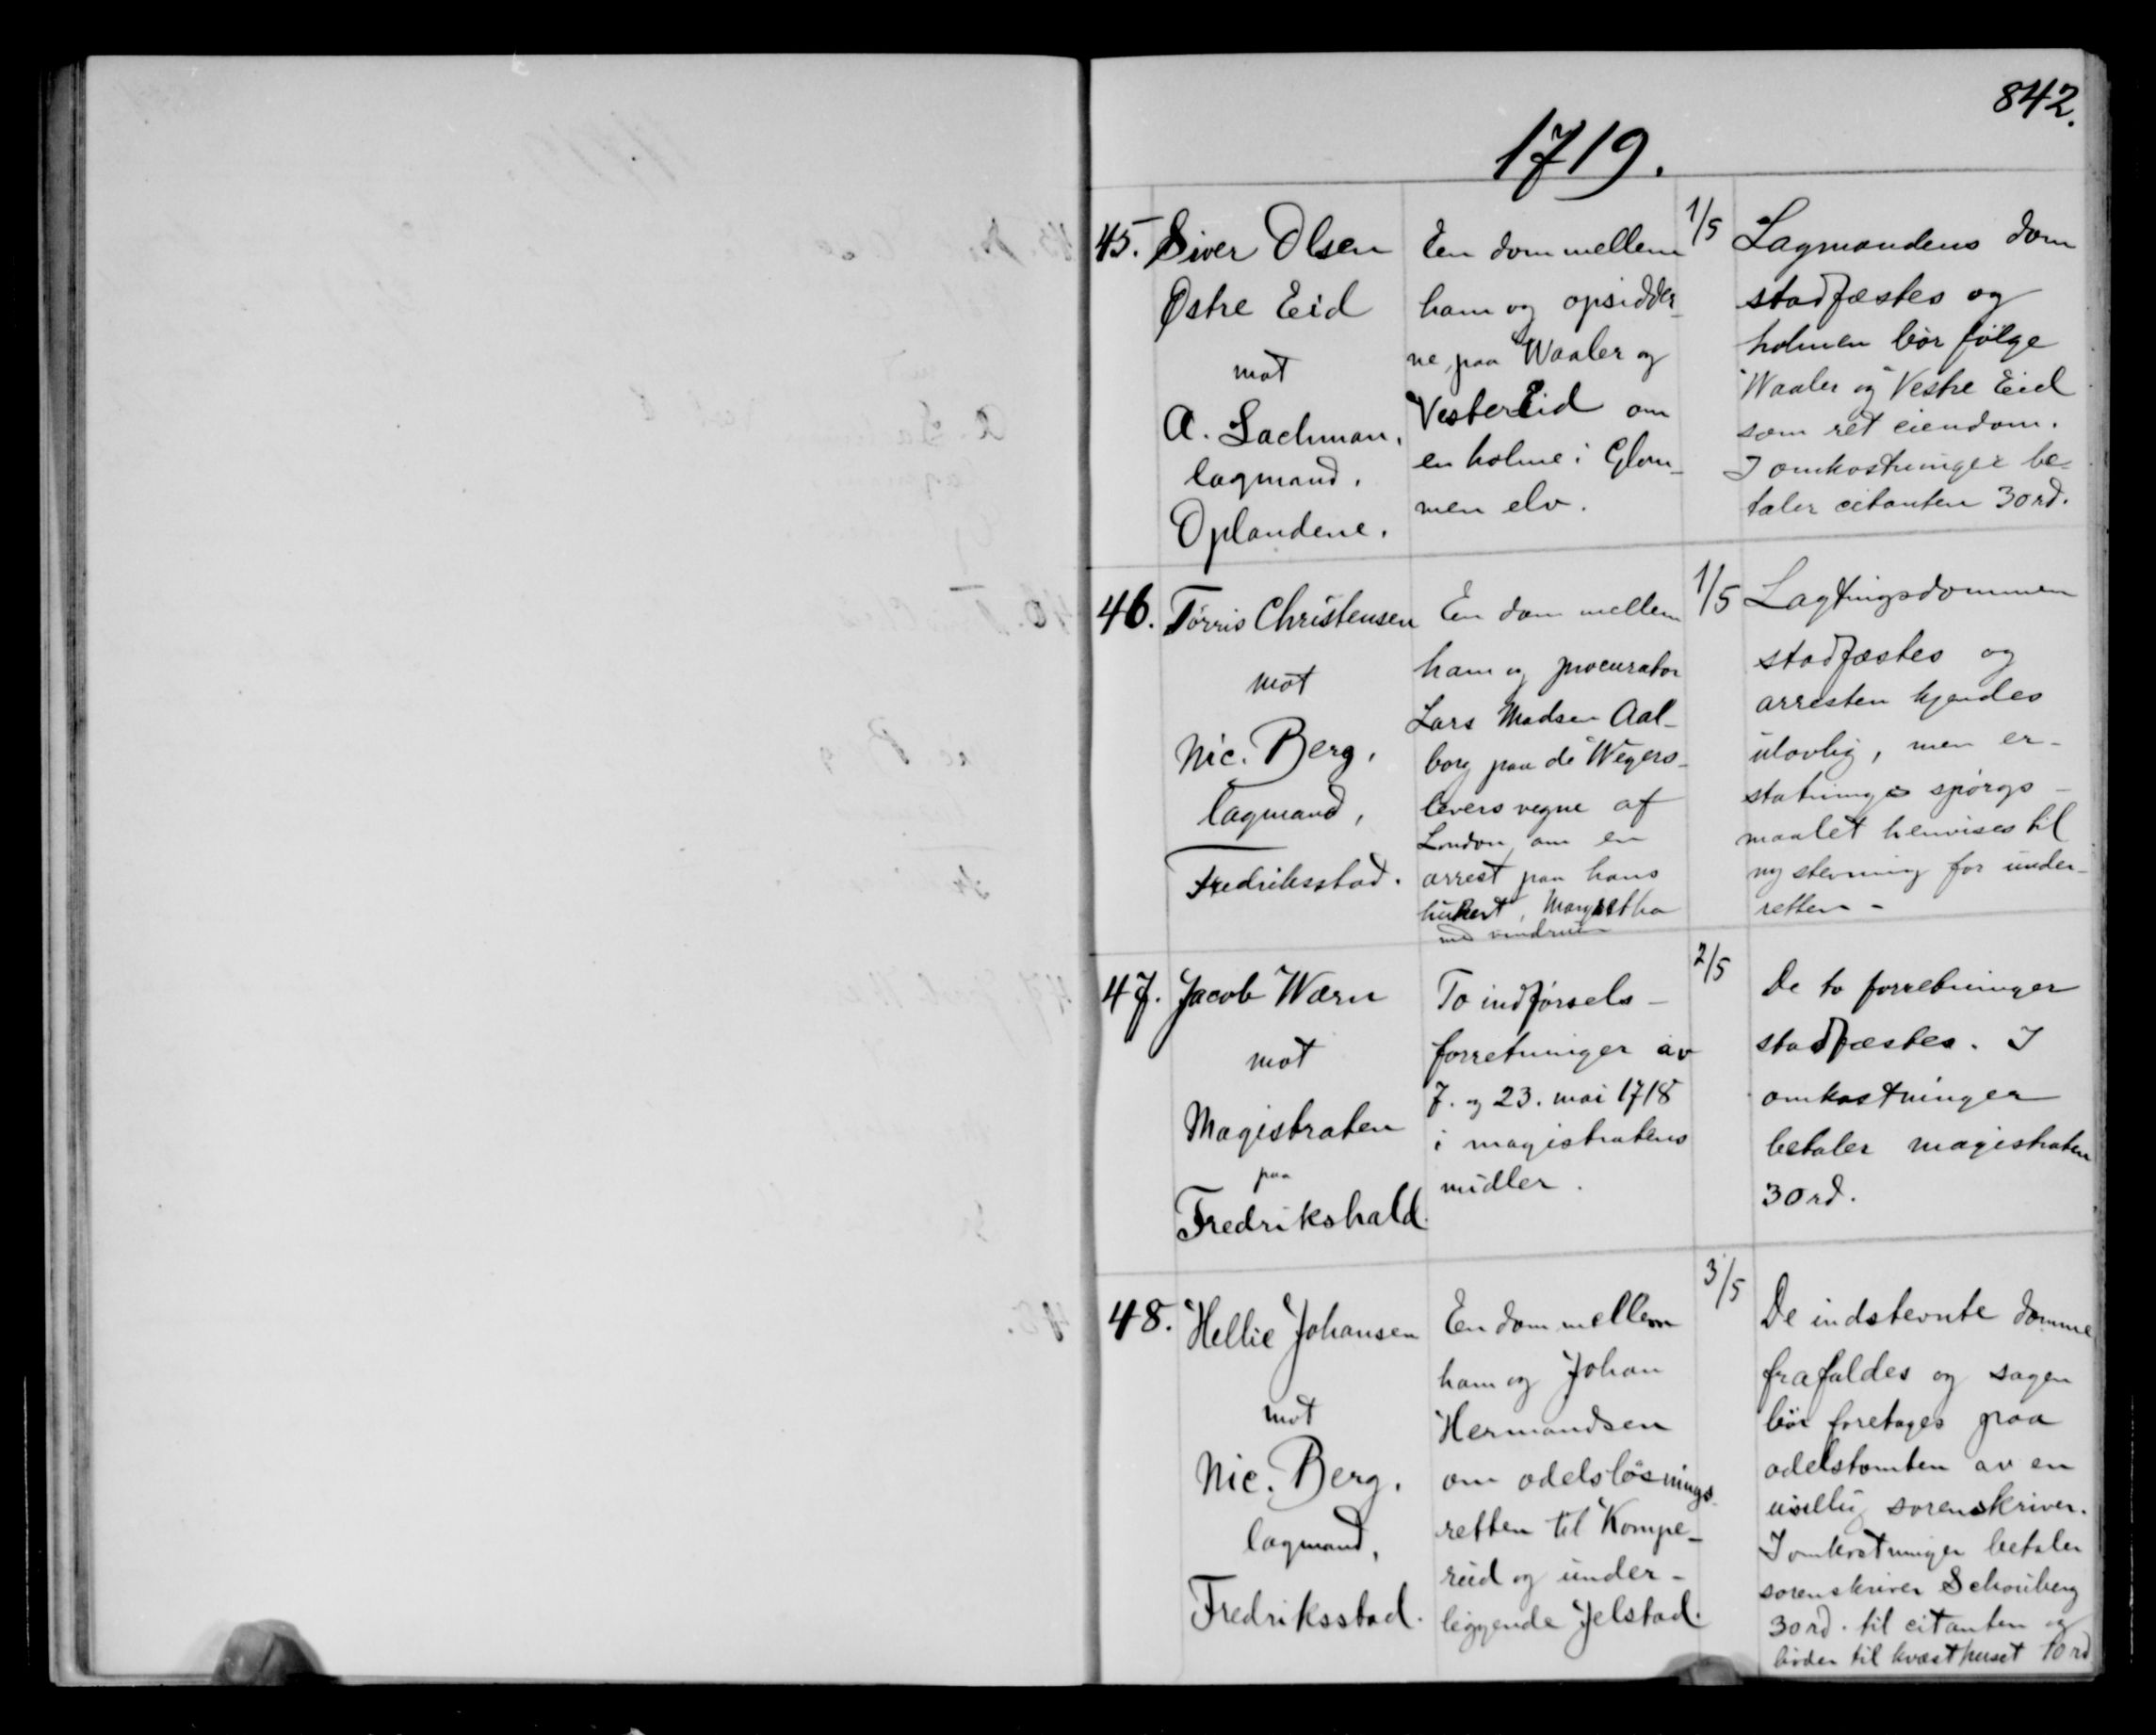 842.
1719.
45.
Siver Olsen
Østre Eid
mot
A. Lachman,
lagmand,
Oplandene.
Een dom mellem
ham og opsidder-
ne paa Waaler og
Vester Eid om
en holme i Glom-
men elv.
1/5
Lagmandens dom
stadfæstes og
holmen bør følge
Waaler og Vestre Eid
som ret eiendom.
I omkostninger be-
taler citanten 30 rd.
46.
Tørris Christensen
mot
Nic. Berg,
lagmand,
Fredriksstad.
En dom mellem
ham og procurator
Lars Madsen Aal-
borg paa de Wegers-
levers vegne af
London om en
arrest paa hans
hukert, Margretha
med
1/5
Lagtingsdommen
stadfæstes og
arresten kjendes
ulovlig, men er-
statnings spørgs-
maalet henvises til
ny stevning for under-
retten -
47.
Jacob Wærn
mot
Magistraten
paa
Fredrikshald.
To indførsels-
forretninger av
7. og 23. mai 1718
i magistratens
midler.
2/5
De to forretninger
stadfæstes. I
omkostninger
betaler magistraten
30 rd.
48.
Hellie Johansen
mot
Nic. Berg,
lagmand,
Fredriksstad.
En dom mellem
ham og Johan
Hermandsen
om odelsløsnings-
retten til Kompe-
rud og under-
liggende Jelstad.
3/5
De indstevnte domme
frafaldes og sagen
bør foretages paa
odelstomten av en
uvillig sorenskriver.
I omkostninger betaler
sorenskriver Schouberg
30 rd. til citanten og
bøder til kvæsthuset 10 rd